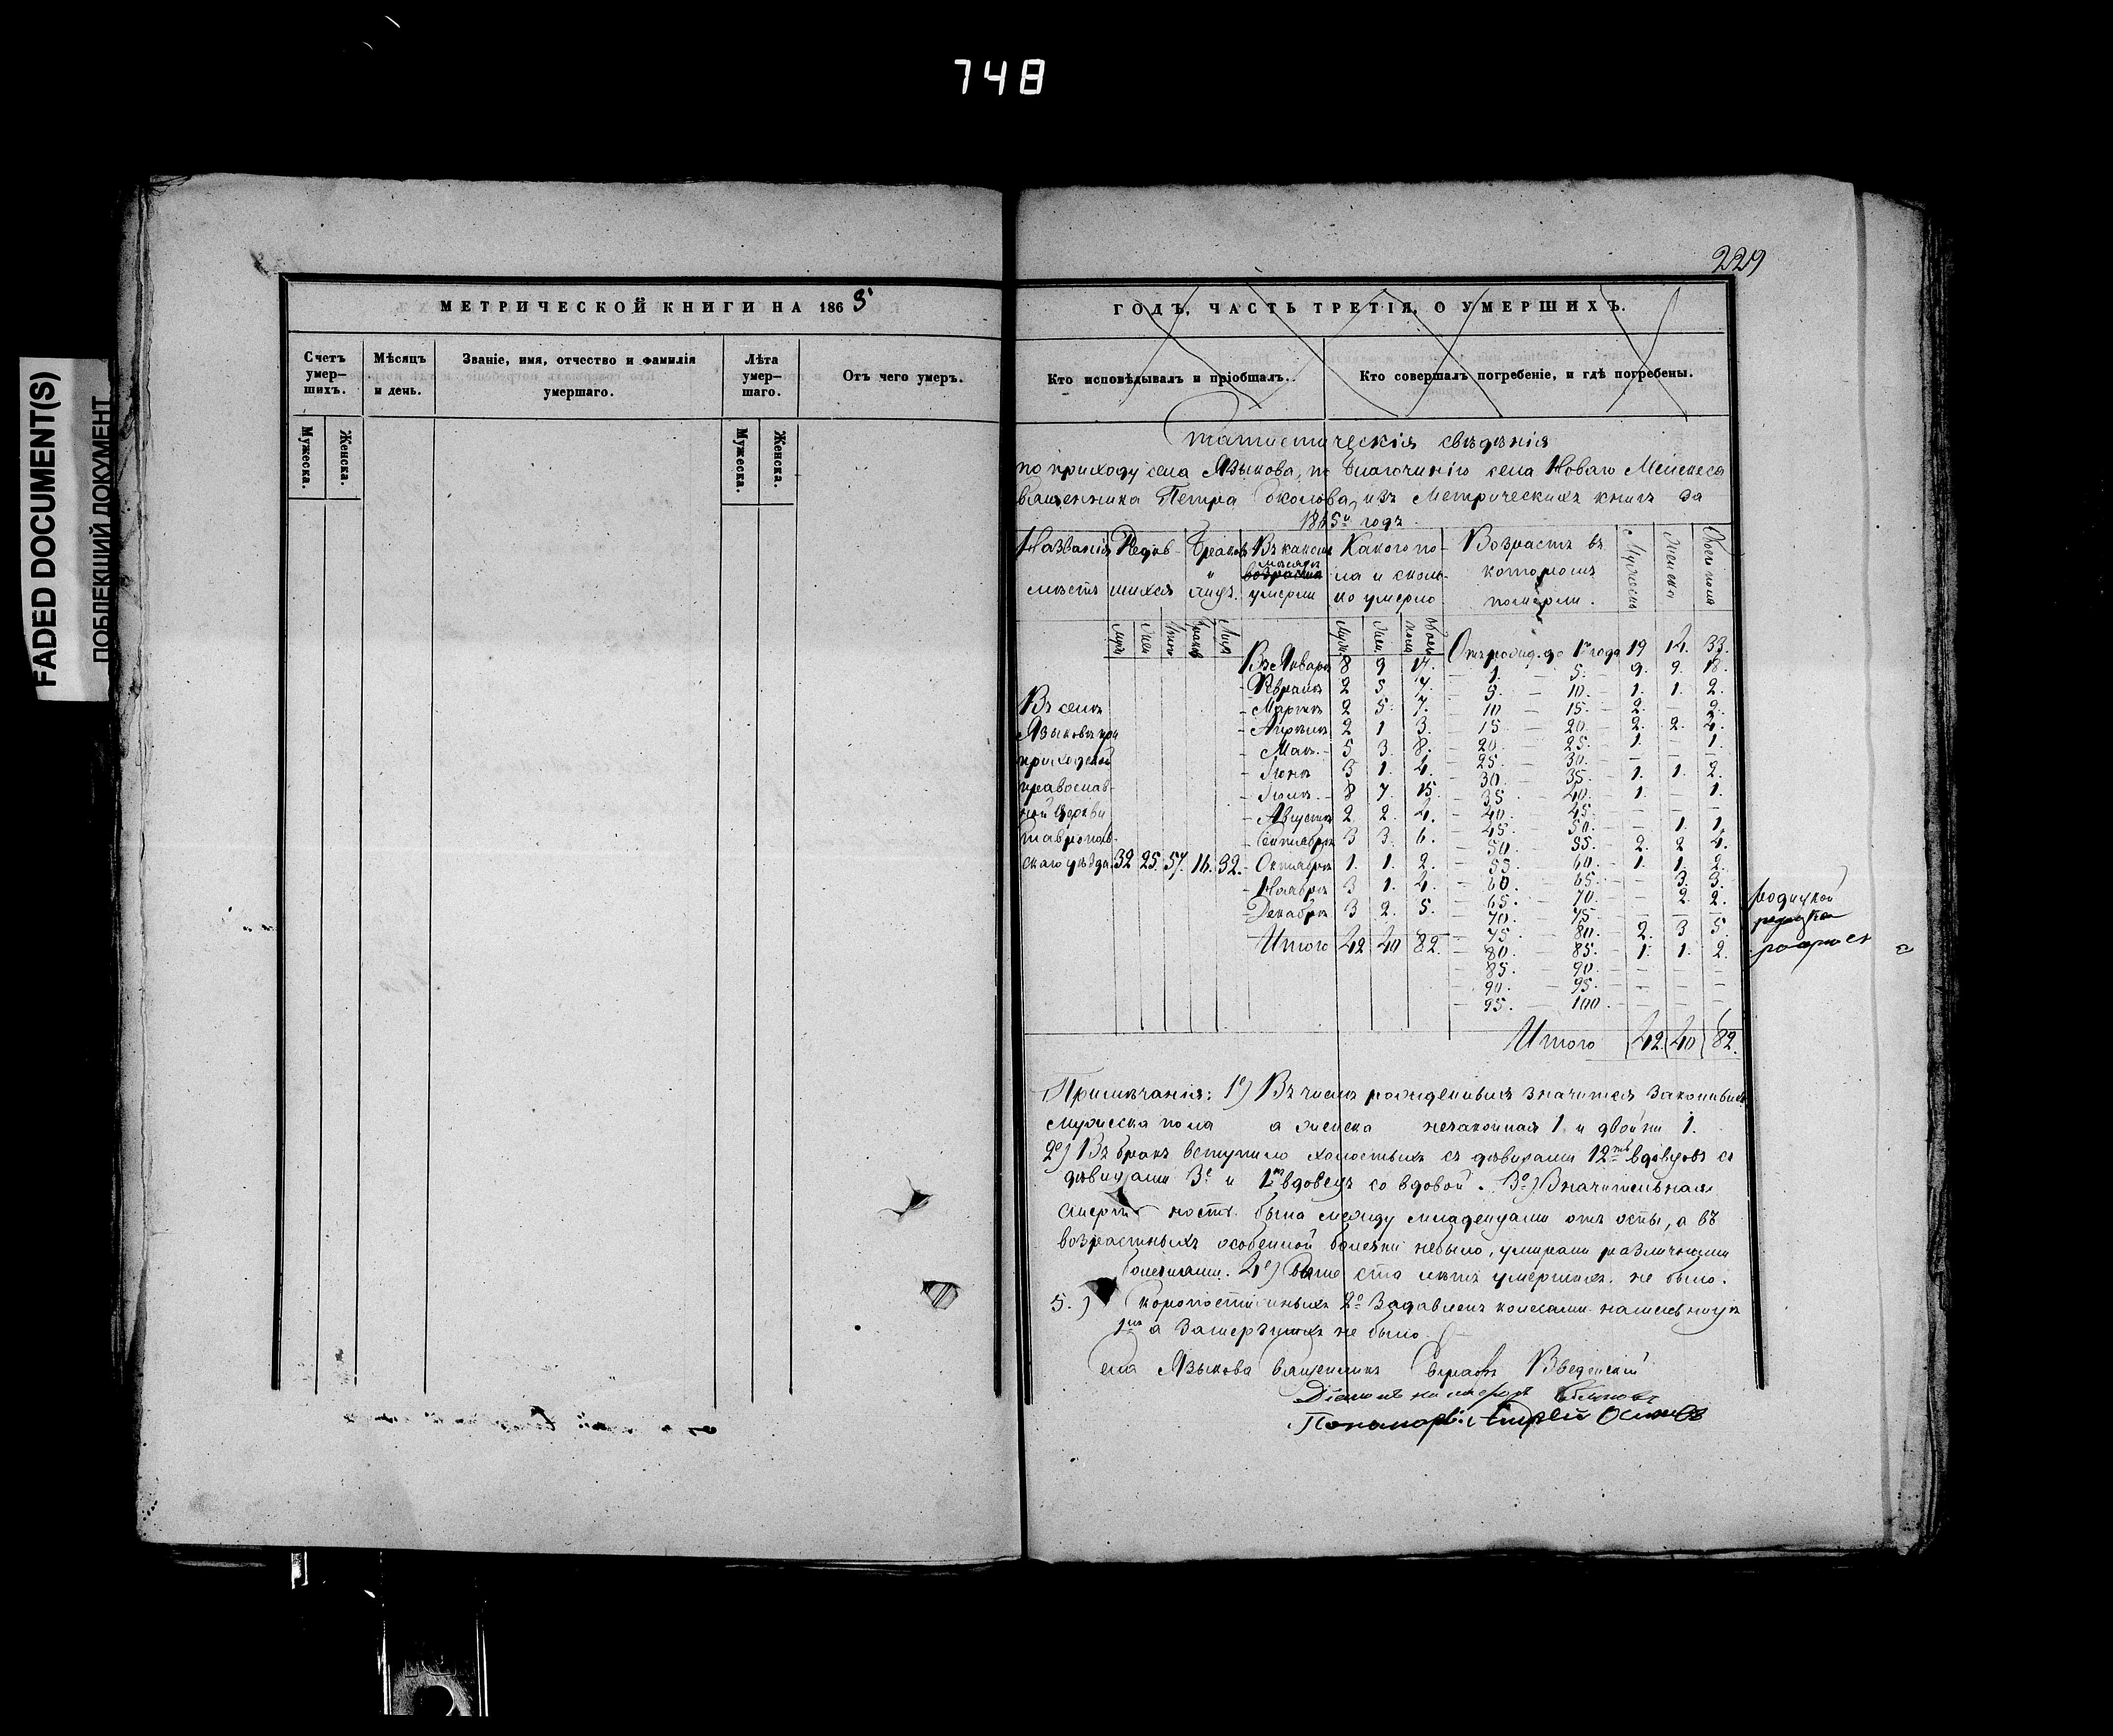 748
FADED DOCUMENT(S)
ПОБЛЕКШИЙ ДОКУМЕНТ
229
МЕТРИЧЕСКОЙ КНИГИ НА 1865
Счетъ умер-шихъ.
Мѣсяцъ и день.
Званіе, имя, отчество и фамилія умершаго.
Лѣта умер-шаго.
Отъ чего умеръ.
Мужеска.
Женска.
Мужеска.
Женска.
ГОДЪ, ЧАСТЬ ТРЕТІЯ, О УМЕРШИХЪ.
Кто исповѣдывалъ и пріобщалъ.
Кто совершалъ погребеніе, и гдѣ погребены.
Статистическія свѣдѣнія
по приходу села Языкова, по благочинію села Новаго
Священника Петра Соколова, изъ Метрическихъ книгъ за
1865й годъ.
Названія мѣстъ
Родив-шихся
Браковъ и лицъ.
Въ какомъ мѣсяцѣ умерли
Какого по-ла и сколь-ко умерло
Возрастъ въ которомъ померли.
Мужеска
Женска
Обоего пола
Отъ рожд. до 1 года 19 14. 33.
Въ Январѣ 8 9 17. — 1. — 5. — 9. 9. 18.
- Февралѣ 2 5 7. — 5. — 10. — 1. 1. 2.
Въ селѣ - Мартѣ 2 5 7. — 10 — 15. — 2. — 2.
Языковѣ при - Апрѣлѣ 2 1 3. — 15 — 20. — 2. 2. 4.
- Маѣ 5 3 8. — 20. — 25. — 1. — 1.
приходской — 25. — 30. — — — —
- Іюнѣ 3 1 4. — 30. — 35. — 1. 1. 2.
православ- - Іюлѣ 8 7 15. — 35. — 40. — 1. — 1.
ной церкви - Августѣ 2 2 4. — 40. — 45. — — — —
— 45. — 50. — — 1. 1.
Ставрополь- - Сентябрѣ 3 3 6. — 50. — 55. — 2. 2 4.
скаго уѣзда. 32 25. 57. 16. 32. - Октябрѣ 1. 1. 2. — 55. — 60. — 1. 1. 2.
- Ноябрѣ 3 1. 4. — 60. — 65. — — 3. 3.
— 65. — 70. — — 2. 2.
- Декабрѣ 3 2. 5. — 70. — 75. — — — —
— 75. — 80. — 2. 3 5.
Итого 42 40 82. — 80. — 85. — 1. 1. 2.
— 85. — 90. — — — —
— 90. — 95. — — — —
— 95. — 100. — — —
Итого 42. 40 82.
Примѣчанія: 1е) Въ числѣ рожденныхъ значится законныхъ
мужеска пола а женска незаконная 1. и двойни 1.
2е) Въ бракъ вступило холостыхъ съ дѣвицами 12ть вдовцовъ съ
дѣвицами 3е и 1нъ вдовецъ со вдовой. 3е) Значительная
смертность была между младенцами отъ оспы, а въ
возрастныхъ особенной болѣзни небыло, умирали различными
болѣзнями. 4е) Болѣе ста лѣтъ умершихъ не было.
5.) Скоропостижныхъ 2е Задавленъ колесами
1нъ а не было.
Села Языкова Священникъ Введенскій
Діаконъ
Пономарь Андрей